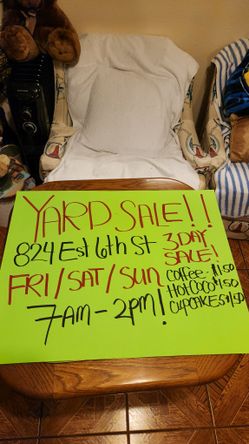 YARD SALE!!
824 Est 6th St
3 DAY
SALE!
FRI/SAT/SUN
7AM-2PM!
Coffee-$1.50
Hot Coco $1.50
CUPCAKES $1.50